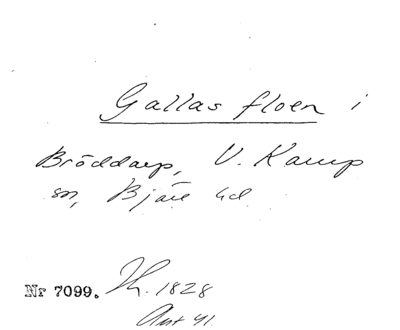 Gallas floen i
Bröddarp, V. Karup
sn, Bjäre hd
Nr 7099. 1828
41